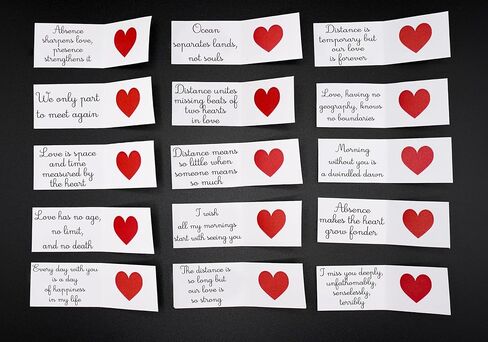 Absence
sharpens love,
presence
strengthens it
Ocean
separates lands,
not souls
Distance is
temporary but
our love
is forever
We only part
to meet again
Distance unites
missing beats of
two hearts
in love
Love, having no
geography, knows
no boundaries
Love is space
and time
measured by
the heart
Distance means
so little when
someone means
so much
Morning
without you is
a dwindled dawn
Love has no age,
no limit,
and no death
I wish
all my mornings
start with seeing you
Absence
makes the heart
grow fonder
Every day with you
is a day
of happiness
in my life
The distance is
so long but
our love is
so strong
I miss you deeply,
unfathomably,
senselessly,
terribly